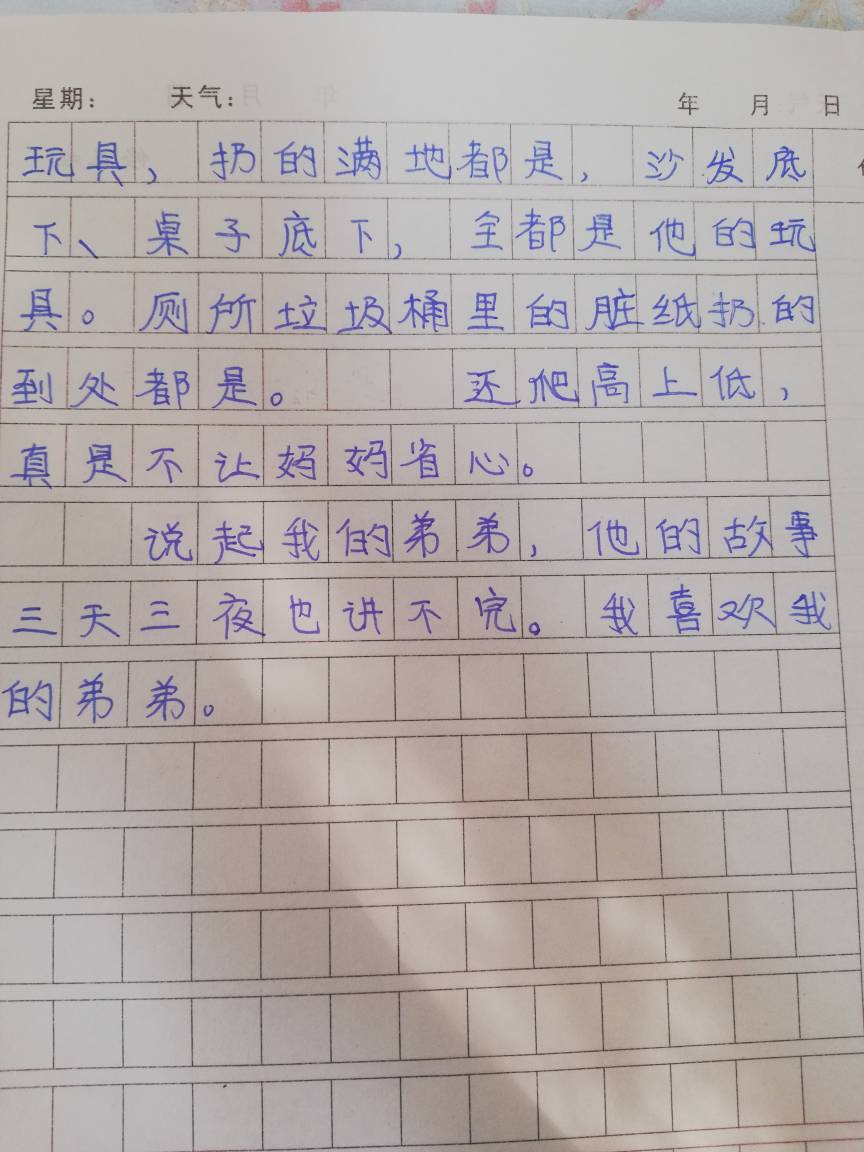 星期： 天气： 年 月 日
玩具，扔的满地都是，沙发底
下、桌子底下，全都是他的玩
具。厕所垃圾桶里的脏纸扔的
到处都是。 还爬高上低，
真是不让妈妈省心。
说起我的弟弟，他的故事
三天三夜也讲不完。我喜欢我
的弟弟。